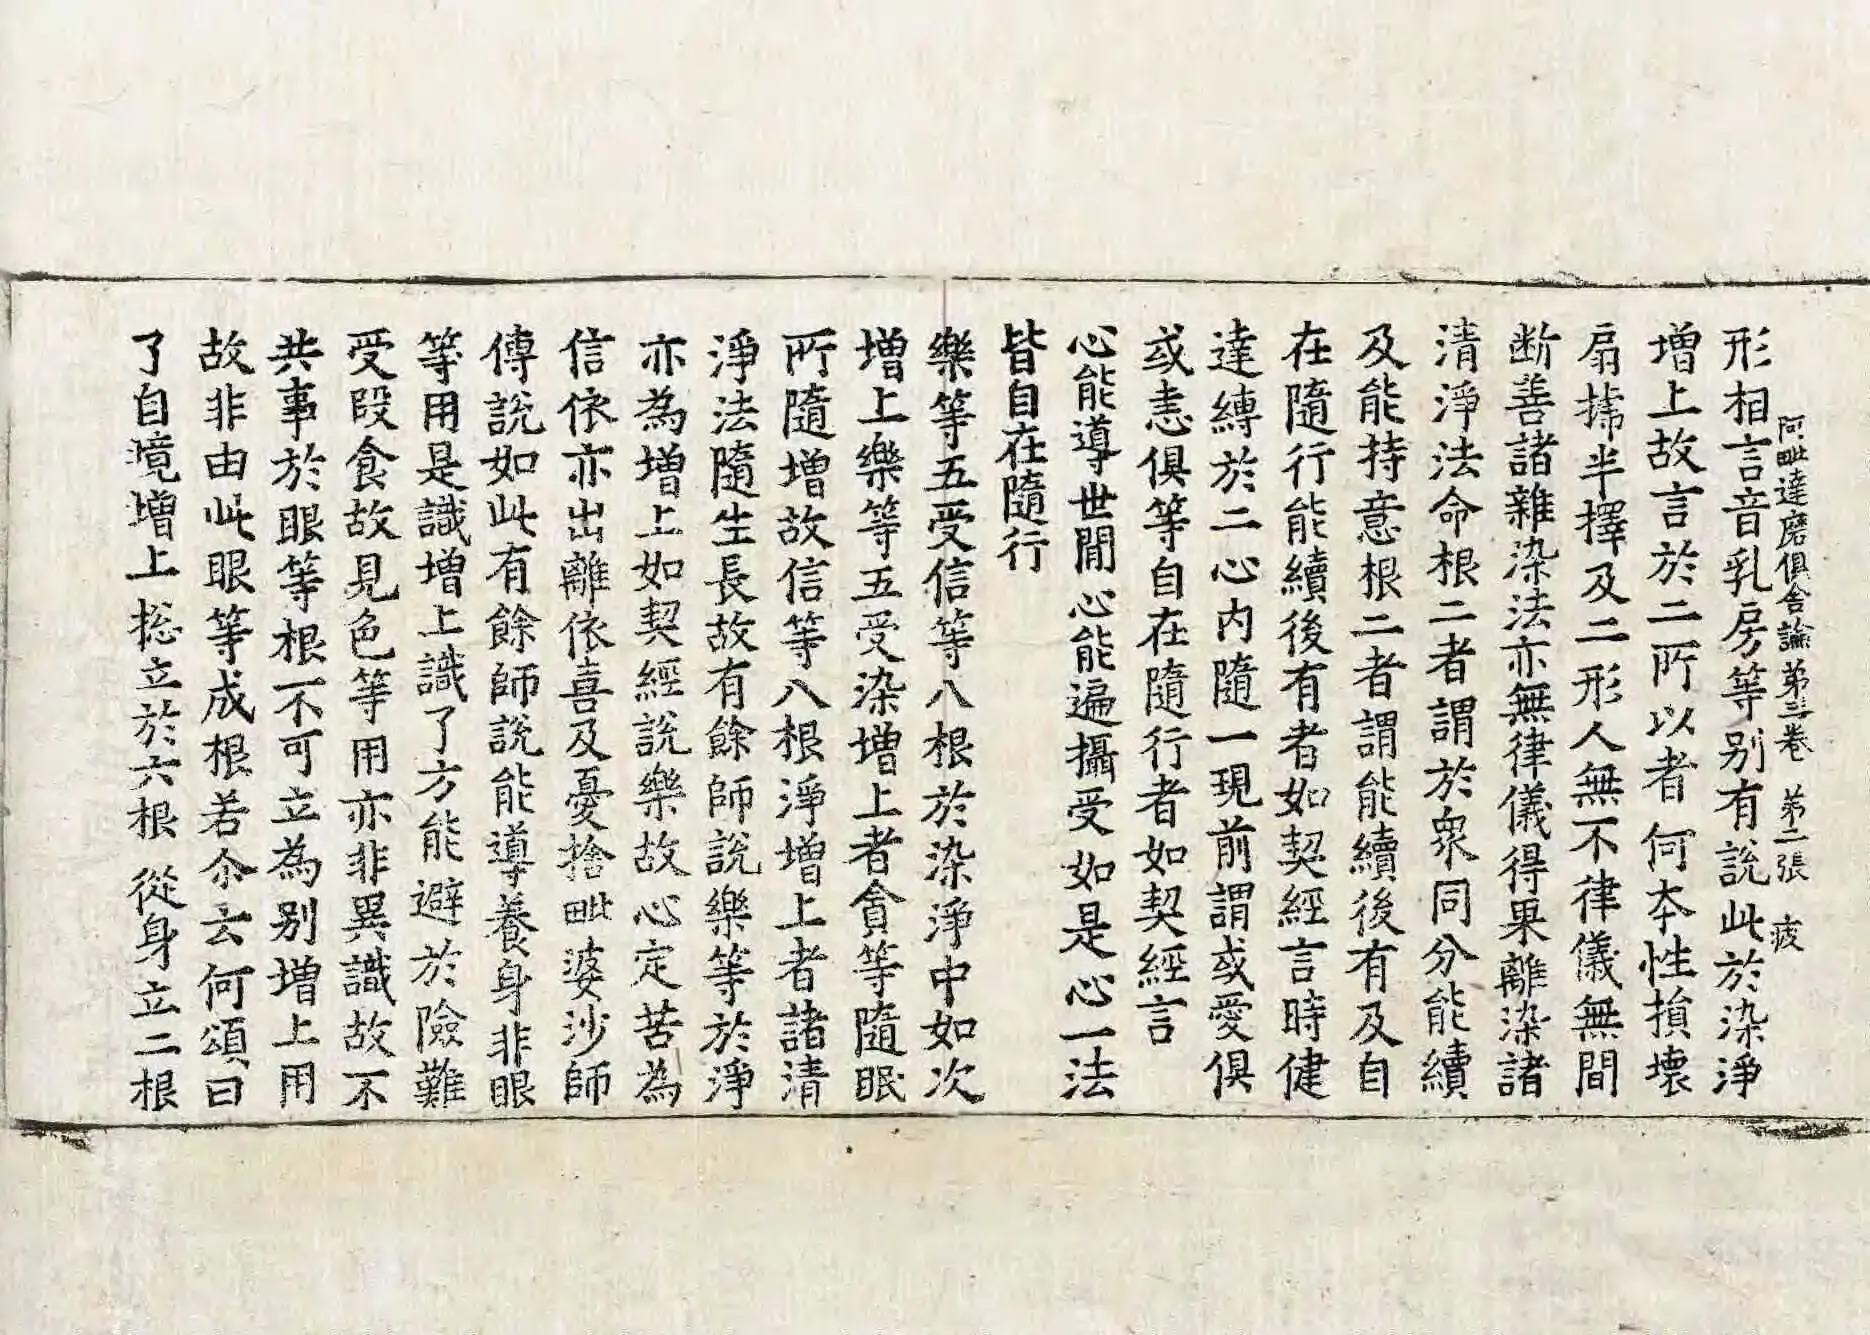 阿毗達磨俱舍論第三卷 第二張 疲
形相言音乳房等別有說此於染淨
增上故言於二所以者何本性損壞
扇搋半擇及二形人無不律儀無間
断善諸雜染法亦無律儀得果離染諸
清淨法命根二者謂於衆同分能續
及能持意根二者謂能續後有及自
在隨行能續後有者如契經言時健
達縛於二心内隨一現前謂或愛俱
或恚俱等自在隨行者如契經言
心能導世間心能遍攝受如是心一法
皆自在隨行
樂等五受信等八根於染淨中如次
增上樂等五受染增上者貪等隨眠
所隨增故信等八根淨增上者諸清
淨法隨生長故有餘師說樂等於淨
亦為增上如契經說樂故心定苦為
信依亦出離依喜及憂捨毗婆沙師
傳說如此有餘師說能導養身非眼
等用是識增上識了方能避於險難
受段食故見色等用亦非異識故不
共事於眼等根不可立為別增上用
故非由此眼等成根若尒云何頌曰
了自境增上 揔立於六根 從身立二根